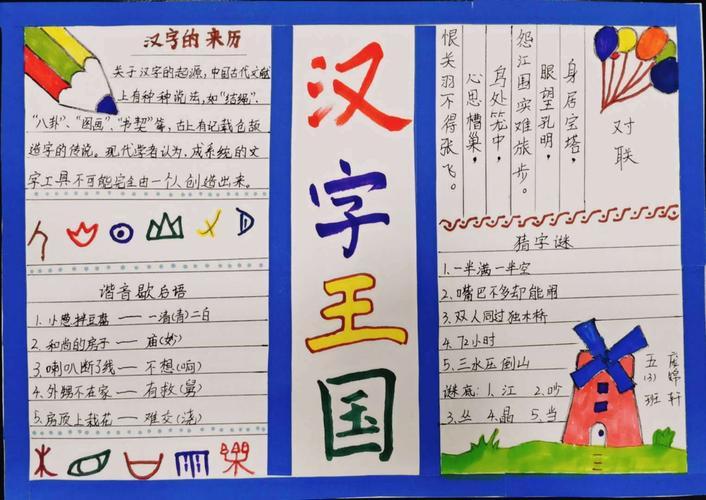 汉字的来历
关于汉字的起源,中国古代文献
上有种种说法,如"结绳"、
"八卦"、"图画"、"书契"等,古上有记载仓颉
造字的传说。现代学者认为,成系统的文
字工具不可能完全由一个人创造出来。
谐音歇后语
1.小葱拌豆腐——一清(青)二白
2.和尚的房子——庙(妙)
3.喇叭断了线——不想(响)
4.外甥不在家——有救(舅)
5.房顶上栽花——难交(浇)
汉字王国
对联
身居宝塔,
眼望孔明,
怨江围实难旅步。
鸟处笼中,
心思槽巢,
恨关羽不得张飞。
猜字谜
1.一半满一半空
2.嘴巴不多却能闹
3.双人同过独木桥
4.72小时
5.三水压倒山
谜底:1.江 2.吵
3.丛 4.晶 5.当
五(3)班
锦轩